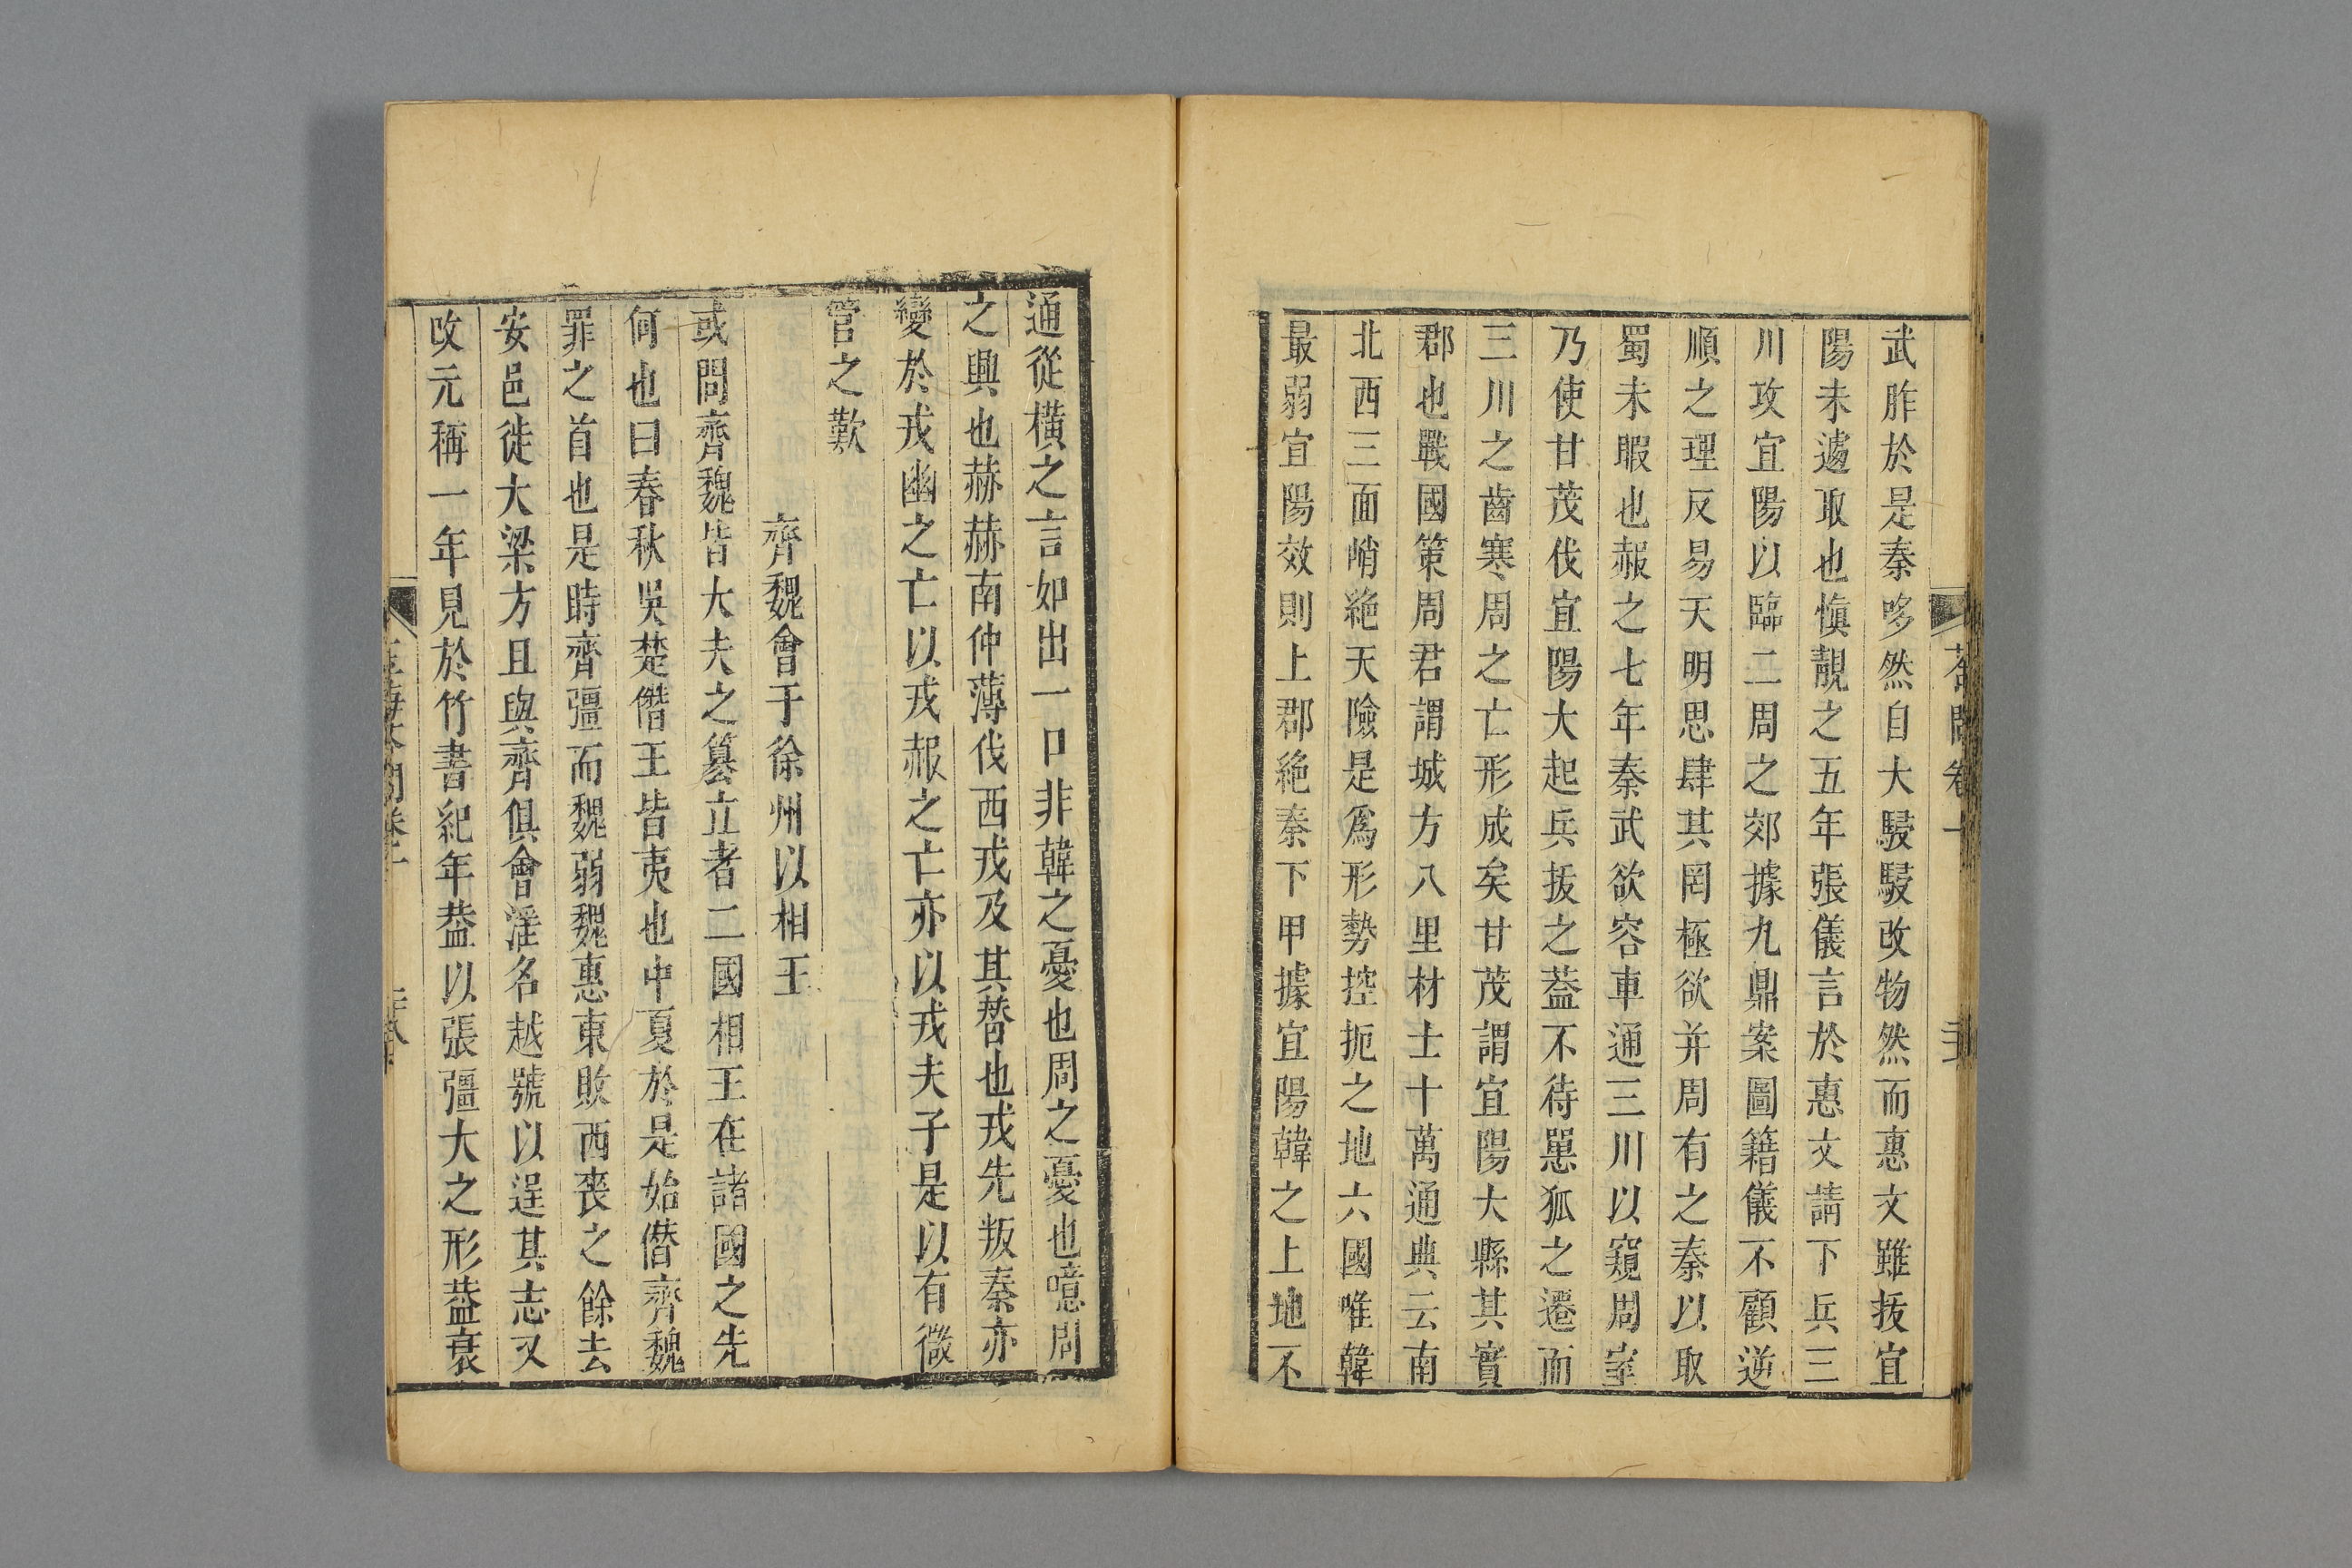 武胙於是秦哆然自大駸駸改物然而惠文雖拔宜
陽未遽取也慎靚之五年張儀言於惠文請下兵三
川攻宜陽以臨二周之郊據九鼎案圖籍儀不顧逆
順之理反易天明思肆其罔極欲并周有之秦以取
蜀未暇也赧之七年秦武欲容車通三川以窺周室
乃使甘茂伐宜陽大起兵拔之葢不待𢠸狐之遷而
三川之齒寒周之亡形成矣甘茂謂宜陽大縣其實
郡也戰國策周君謂城方八里材士十萬通典云南
北西三面峭絕天險是爲形勢控扼之地六國唯韓
最弱宜陽效則上郡絕秦下甲據宜陽韓之上地不
通從橫之言如出一口非韓之憂也周之憂也噫周
之興也赫赫南仲薄伐西戎及其替也戎先叛秦亦
變於戎幽之亡以戎赧之亡亦以戎夫子是以有微
管之歎
齊魏會于徐州以相王
或問齊魏皆大夫之簒立者二國相王在諸國之先
何也曰春秋吳楚僭王皆夷也中夏於是始僭齊魏
罪之首也是時齊彊而魏弱魏惠東敗西喪之餘去
安邑徙大梁方且與齊俱會淫名越號以逞其志又
改元稱一年見於竹書紀年葢以張彊大之形葢衰